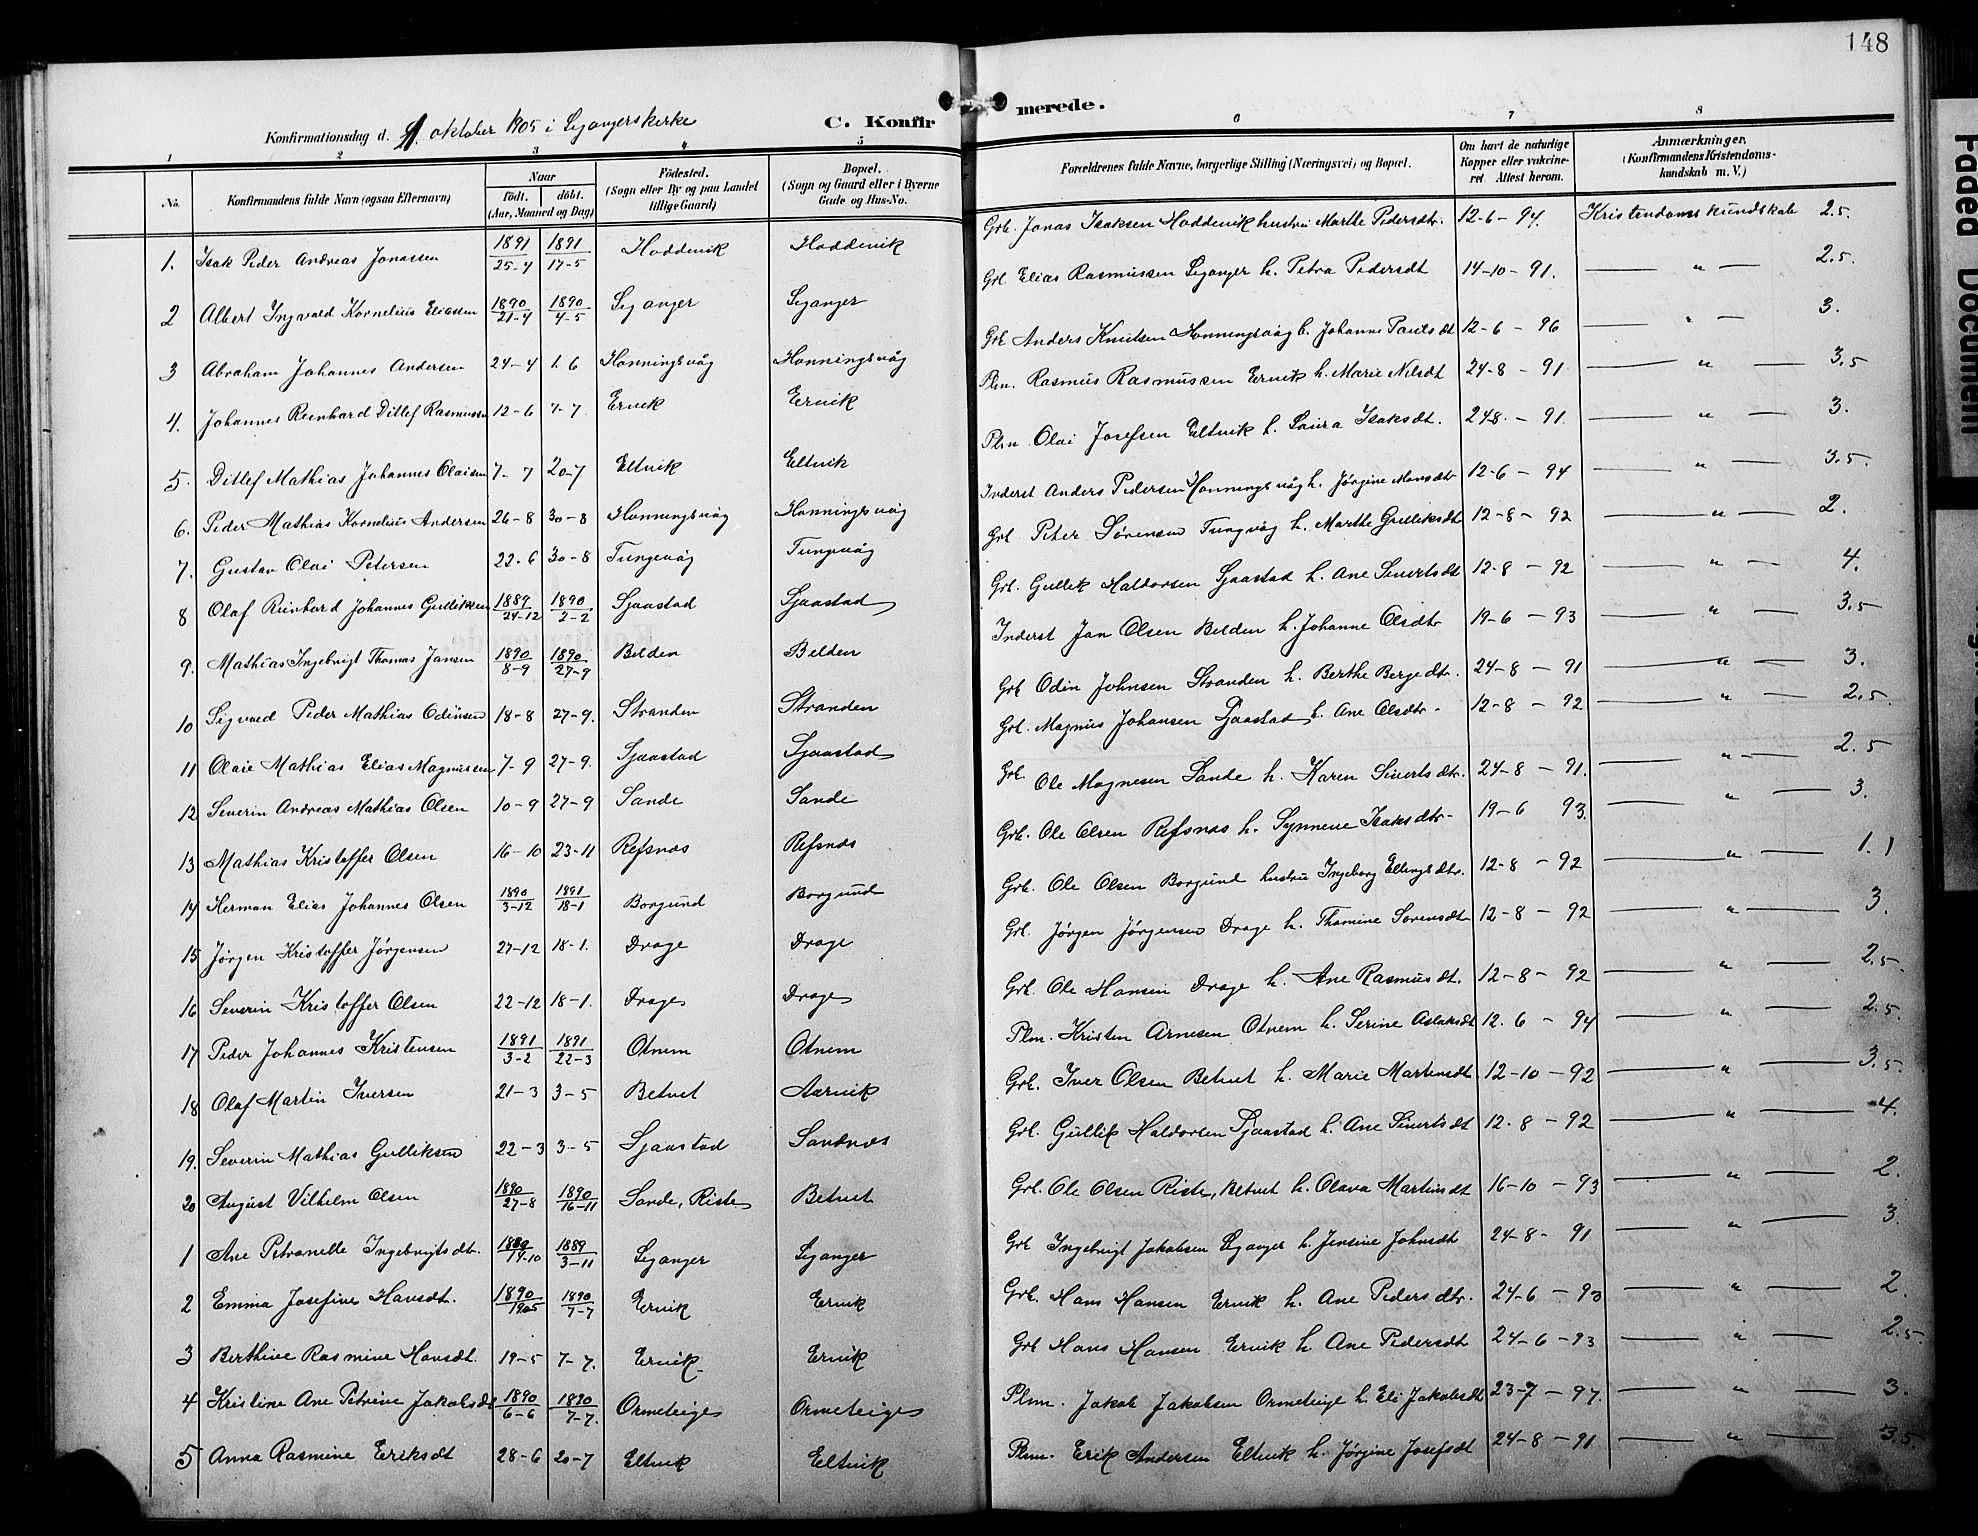 148
C. Konfirmerede.
Konfirmationsdag d. 1. oktober 1905 i Leganger kirke
1 2 3 4 5 6 7 8
No. Konfirmandens fulde Navn (ogsaa Efternavn) Naar født. døbt. (Aar, Maaned og Dag) Fødested. (Sogn eller By og paa Landet tillige Gaard) Bopæl. (Sogn og Gaard eller i Byerne Gade og Hus-No. Forældrenes fulde Navne, borgerlige Stilling (Næringsvei) og Bopæl. Om havt de naturlige Kopper eller vakcineret Attest herom. Anmærkninger. (Konfirmandens Kristendomskundskab m. V.)
1. Isak Peder Andreas Jonassen 1891 25-4 1891 17-5 Hoddevik Hoddevik Grb. Jonas Isaksen Hoddevik hustru Marthe Pedersdtr. 12-6-94. Kristendomskundskab 2.5.
2 Albert Ingvald Kornelius Eliassen 1890 21-4 1890 4-5 Leganger Leganger Grb. Elias Rasmussen Leganger h. Petra Pedersdt 14-10-91. — " — 2.5.
3 Abraham Johannes Andersen 24-4 1.6 Honningsvåg Honningsvåg Grb Anders Knutsen Honningsvåg h. Johanne Paulsdt 12-6-96 — " — 3.
4. Johannes Reinhard Ditlef Rasmussen 12-6 7-7. Ervik Ervik Plm. Rasmus Rasmussen Ervik h. Marie Nilsdt 24-8-91 — " — 3.5
5. Ditlef Mathias Johannes Olaisen 7-7 20-7 Eltvik Eltvik Plm Olai Josefsen Eltvik h. Laura Isaksdt. 24-8-91. — " — 3.
6. Peder Mathias Kornelius Andersen 26-8 30-8 Honningsvåg Honningsvåg Inderst Anders Pedersen Honningsvåg h. Jørgine Monsdtr 12-6-94 — " — 3.5.
7. Gustav Olai Petersen 22-6 30-8 Tungevåg Tungevåg Grb Peter Sørensen Tungvåg h. Marthe Gulliksdt 12-8-92 — " — 2.
8 Olaf Reinhard Johannes Gulliksen 1889 24-12 1890 2-2 Sjaastad Sjaastad Grb. Gullik Haldorsen Sjaastad h. Ane Sivertsdt 12-8-92 — " — 4.
9. Mathias Ingebrigt Thomas Jansen 1890 8-9 1890 27-9 Belden Belden Inderst Jan Olsen Belden h. Johanne Olsdtr 19-6-93 — " — 3.5
10 Sigvald Peder Mathias Odinsen 18-8 27-9. Stranden Stranden Grb Odin Johnsen Stranden h. Berthe Bergedtr. 24-8-91 — " — 3.
11 Olaie Mathias Elias Magnussen 7-9 27-9. Sjaastad Sjaastad Grb. Magnus Johansen Sjaastad h. Ane Olsdtr. 12-8-92 — " — 2.5.
12 Severin Andreas Mathias Olsen 10-9 27-9 Sande Sande Grb. Ole Magnesen Sande h. Karen Sivertsdtr. 24-8-91. — " — 2.5
13 Mathias Kristoffer Olsen 16-10 23-11 Refsnæs Refsnæs Grb. Ole Olsen Refsnæs h. Synneve Isaksdtr. 19-6 93. — " — 3.
14 Herman Elias Johannes Olsen 1890 3-12 1891 18-1 Borgund Borgund Grb. Ole Olsen Borgund hustru Ingeborg Ellingsdtr. 12-8-92 — " — 1.1
15 Jørgen Kristoffer Jørgensen 27-12 18-1. Drage Drage Grb. Jørgen Jørgensen Drage h. Thomine Sørensdt 12-8-92 — " — 3.
16 Severin Kristoffer Olsen 22-12 18-1. Drage Drage Grb. Ole Hansen Drage h. Ane Rasmusdt. 12-8-92 — " — 2.5.
17 Peder Johannes Kristensen 1891 3-2 1891 22-3 Otnem Otnem Plm. Kristen Arnesen Otnem h. Serine Aslaksdt 12.6-94 — " — 2.5.
18 Olaf Martin Iversen 21-3 3-5 Betvet Aarvik Grb. Iver Olsen Betvet h. Marie Martinsdt 12-10-92 — " — 3.5.
19. Severin Mathias Gulliksen 22-3 3-5 Sjaastad Sandnæs Grb. Gullik Haldorsen Sjaastad h. Ane Sivertsdt 12-8-92 — " — 4.
20 August Vilhelm Olsen 1890 27-8 1890 16-11 Sande, Riste Betvet Grb. Ole Olsen Riste, Betvet h. Olava Martinsdt 16-10-93 — " — 2.
1 Ane Petronelle Ingebrigtsdtr. 1889 14-10 1889 3-11 Leganger Leganger Grb Ingebrigt Jakobsen Leganger h. Jensine Johnsdt 24-8-91 — " — 3.
2 Emma Josefine Hansdt. 1890 19-5 1890 7-7 Ervik Ervik Grb. Hans Hansen Ervik h. Ane Pedersdtr. 24-6-93 — " — 2.
3 Berthine Rasmine Hansdt. 19-5 7-7. Ervik Ervik Grb Hans Hansen Ervik h. Ane Pedersdt 24-6-93 — " — 2.5
4 Kristine Ane Petrine Jakobsdt 1890 6-6 1890 7-7. Ormeteige Ormeteige Plm. Jakob Jakobsen Ormeteige h. Eli Jakobsdt 23-7-97. — " — 3.
5 Anna Rasmine Eriksdt 28-6 20-7 Eltvik Eltvik Plm. Erik Andersen Eltvik h. Jørgine Josefsdt 24-8-91 — " — 3.5
Faded Document